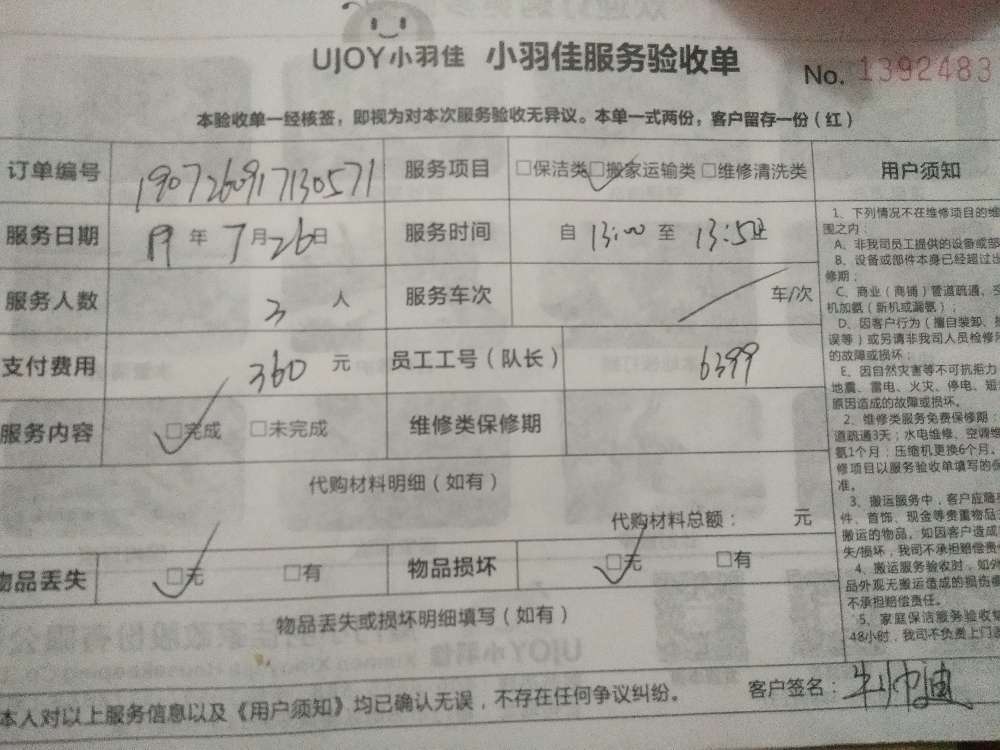 UJOY小羽佳 小羽佳服务验收单 No. 1392483
本验收单一经核签，即视为对本次服务验收无异议。本单一式两份，客户留存一份（红）
订单编号 190726091713057​1 服务项目 □保洁类 □搬家运输类 □维修清洗类
服务日期 19 年 7 月 26 日 服务时间 自 13:00 至 13:52
服务人数 3 人 服务车次 车/次
支付费用 360 元 员工工号（队长） 6399
服务内容 □完成 □未完成 维修类保修期
代购材料明细（如有）
代购材料总额： 元
物品丢失 □无 □有 物品损坏 □无 □有
物品丢失或损坏明细填写（如有）
本人对以上服务信息以及《用户须知》均已确认无误，不存在任何争议纠纷。 客户签名：
用户须知
1、下列情况不在维修项目的维
围之内：
A、非我司员工提供的设备或部
B、设备或部件本身已经超过
修期；
C、商业（商铺）管道疏通、空
机加氨（新机或漏氨）；
D、因客户行为（擅自装卸、
误等）或另请非我司人员检修
的故障或损坏；
E、因自然灾害等不可抗拒力
地震、雷电、火灾、停电、短
原因造成的故障或损坏。
2、维修类服务免费保修期：
道疏通3天；水电维修、空调维
氨1个月；压缩机更换6个月。
修项目以服务验收单填写的保
准。
3、搬运服务中，客户应随
件、首饰、现金等贵重物品
搬运的物品，如因客户造成
失/损坏，我司不承担赔偿责
4、搬运服务验收时，如外
品外观无搬运造成的损伤
不承担赔偿责任。
5、家庭保洁服务验收
48小时，我司不负责上门